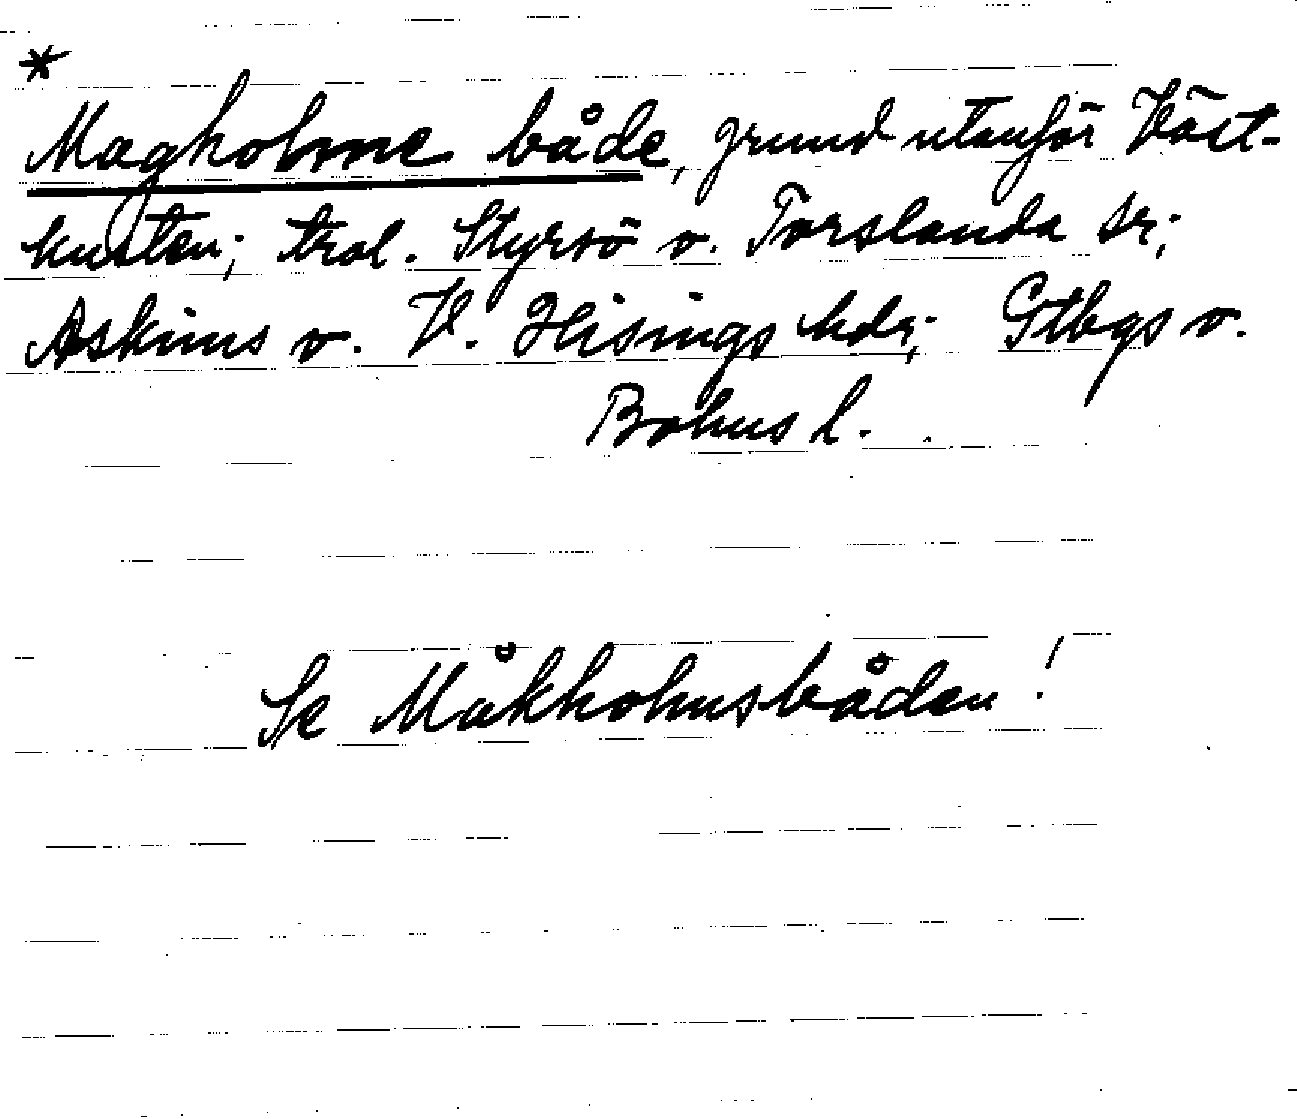 *
Magholme både, grund utanför Väst-
kusten; trol. Styrsö o. Torslanda sr;
Askims o. V. Hisings hdr; Gtbgs o.
Bohus l.
Se Måkholmsbåden!